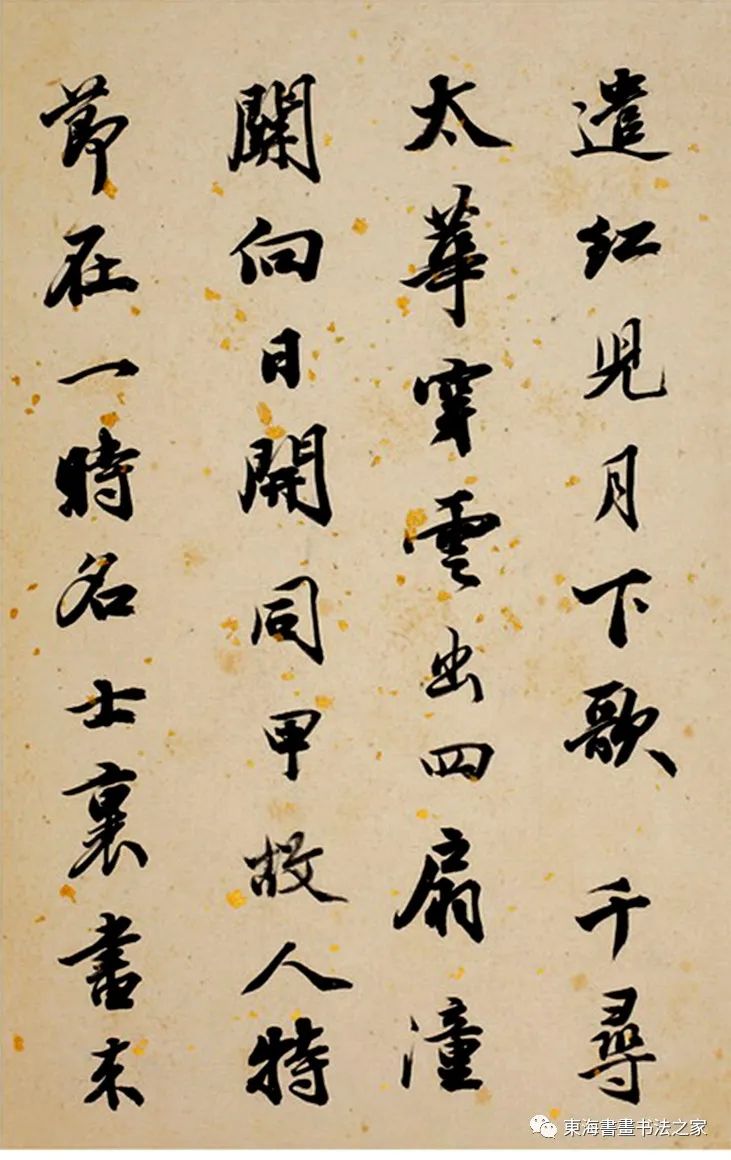 遣紅兒月下歌 千尋
太華穿雲出四扇潼
關向日開同甲故人特
節在一時名士裏書來
東海書畫书法之家